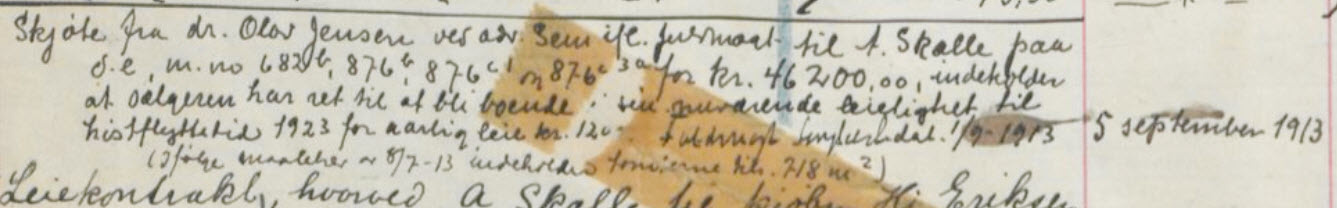 Skjøte fra dr. Olav Jensen ved adv. Sem ifl. fuldmagt til A. Skalle paa
d.e, m. no 682ᵇ, 876ᵇ, 876ᶜ¹ og 876ᶜ³ᵃ for kr. 46 200,00, indeholder
at sælgeren har ret til at bli boende i sin nuværende leielighet til
høstflyttetid 1923 for aarlig leie kr. 1200 dat. 1/9-1913 5 september 1913
(Ifølge maalebrev av 8/7-13 indeholder tomterne tils. 718 m²)
Leiekontrakt, hvorved A Skalle Hj Eriksen